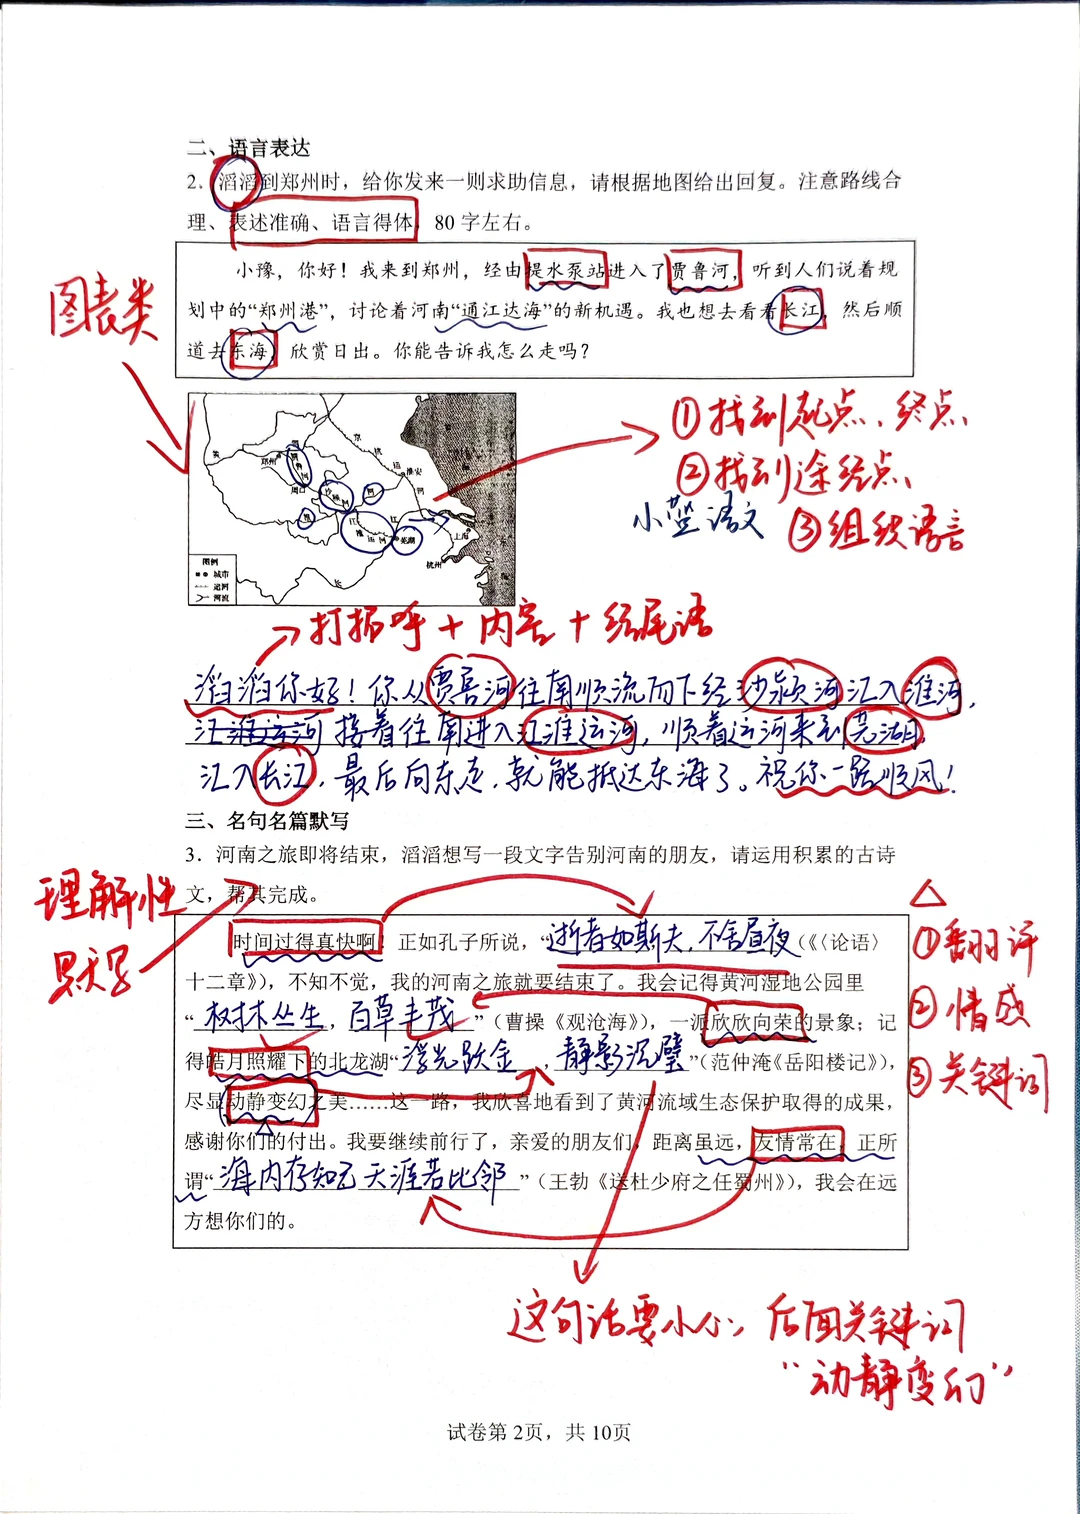 二、语言表达
2．滔滔到郑州时，给你发来一则求助信息，请根据地图给出回复。注意路线合
理、表述准确、语言得体，80字左右。
小豫，你好！我来到郑州，经由提水泵站进入了贾鲁河，听到人们说着规
划中的“郑州港”，讨论着河南“通江达海”的新机遇。我也想去看看长江，然后顺
道去东海，欣赏日出。你能告诉我怎么走吗？
图表类
京
杭
运
河
淮安
黄
郑州
周口
贾鲁河
沙颍河
江淮运河
芜湖
上海
杭州
长
江
图例
城市
运河
河流
①找到起点、终点
②找到途经点
小蓝语文
③组织语言
打招呼＋内容＋结尾语
滔滔你好！你从贾鲁河往南顺流而下经沙颍河汇入淮河，
江淮运河 接着往南进入江淮运河，顺着运河来到芜湖
汇入长江，最后向东走，就能抵达东海了。祝你一路顺风！
三、名句名篇默写
3．河南之旅即将结束，滔滔想写一段文字告别河南的朋友，请运用积累的古诗
文，帮其完成。
理解性
默写
时间过得真快啊！正如孔子所说，“逝者如斯夫，不舍昼夜（《〈论语〉
十二章》），不知不觉，我的河南之旅就要结束了。我会记得黄河湿地公园里
“树木丛生，百草丰茂”（曹操《观沧海》），一派欣欣向荣的景象；记
得皓月照耀下的北龙湖“浮光跃金，静影沉璧”（范仲淹《岳阳楼记》），
尽显动静变幻之美……这一路，我欣喜地看到了黄河流域生态保护取得的成果，
感谢你们的付出。我要继续前行了，亲爱的朋友们，距离虽远，友情常在，正所
谓“海内存知己 天涯若比邻”（王勃《送杜少府之任蜀州》），我会在远
方想你们的。
①翻译
②情感
③关键词
这句话要小心，后面关键词
“动静变幻”
试卷第2页，共10页